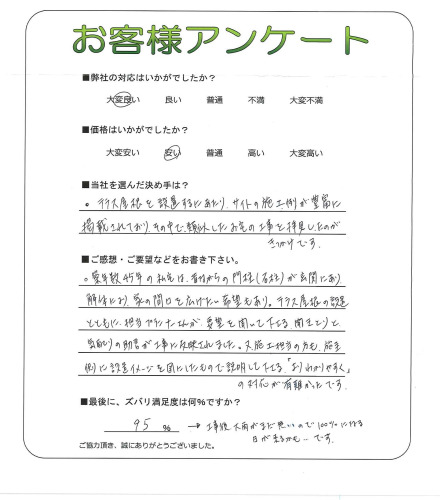 お客様アンケート
■弊社の対応はいかがでしたか？
大変良い 良い 普通 不満 大変不満
■価格はいかがでしたか？
大変安い 安い 普通 高い 大変高い
■当社を選んだ決め手は？
。テラス屋根を設置するにあたり、サイトの施工例が豊富に
掲載されており、その中で、類似したお宅の工事を拝見したのが
きっかけです。
■ご感想・ご要望などをお書き下さい。
。築年数45年の私宅は、昔ながらの門柱(石柱)が玄関にあり
解体により、家の間口を広げたい希望もあり。テラス屋根の設置
とともに、担当プランナーさんが、要望を聞いて下さる
の助言が工事に反映されました。又施工担当の方も、施主
側に設置イメージを図にしたもので説明して下さる「よりわかりやすく」
の対応が有難かったです。
■最後に、ズバリ満足度は何%ですか？
95 % → 工事後大雨がまだ無いので100%になる
日が来るかも…です。
ご協力頂き、誠にありがとうございました。